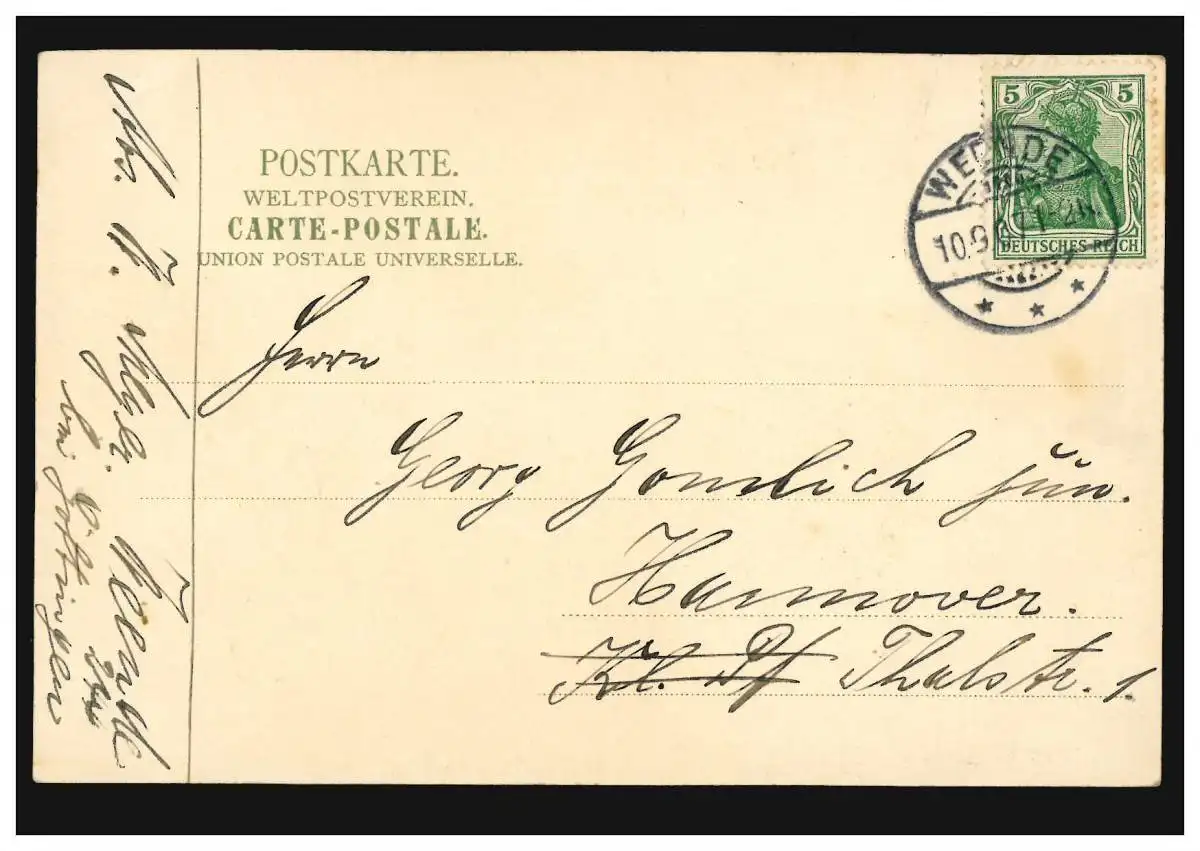 POSTKARTE.
WELTPOSTVEREIN.
CARTE-POSTALE.
UNION POSTALE UNIVERSELLE.
5 5
DEUTSCHES REICH
WEENDE
10.9.07
Herrn
Georg Gomlich jun.
Hannover.
Kl. Pf Thalstr. 1.
Abs. Weende
bei Göttingen